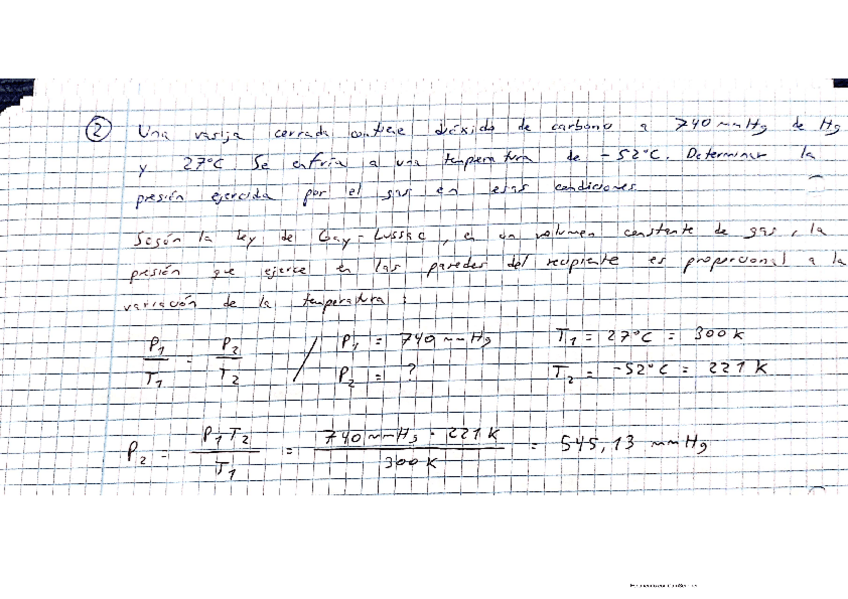 ② Una vasija cerrada contiene dióxido de carbono a 740 mmHg de Hg
y 27°C. Se enfría a una temperatura de -52°C. Determinar la
presión ejercida por el gas en esas condiciones
Según la ley de Gay-Lussac, en un volumen constante de gas, la
presión que ejerce en las paredes del recipiente es proporcional a la
variación de la temperatura:
P₁/T₁ = P₂/T₂ / P₁ = 740 mmHg T₁ = 27°C = 300 K
P₂ = ? T₂ = -52°C = 221 K
P₂ = P₁T₂/T₁ = 740 mmHg · 221 K/300 K = 545,13 mmHg